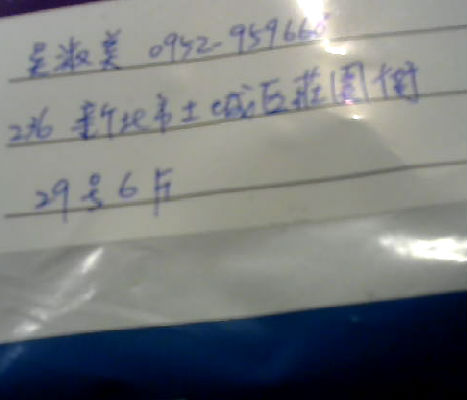 吳淑美 0952-959666
236 新北市土城区莊園街
29号6F